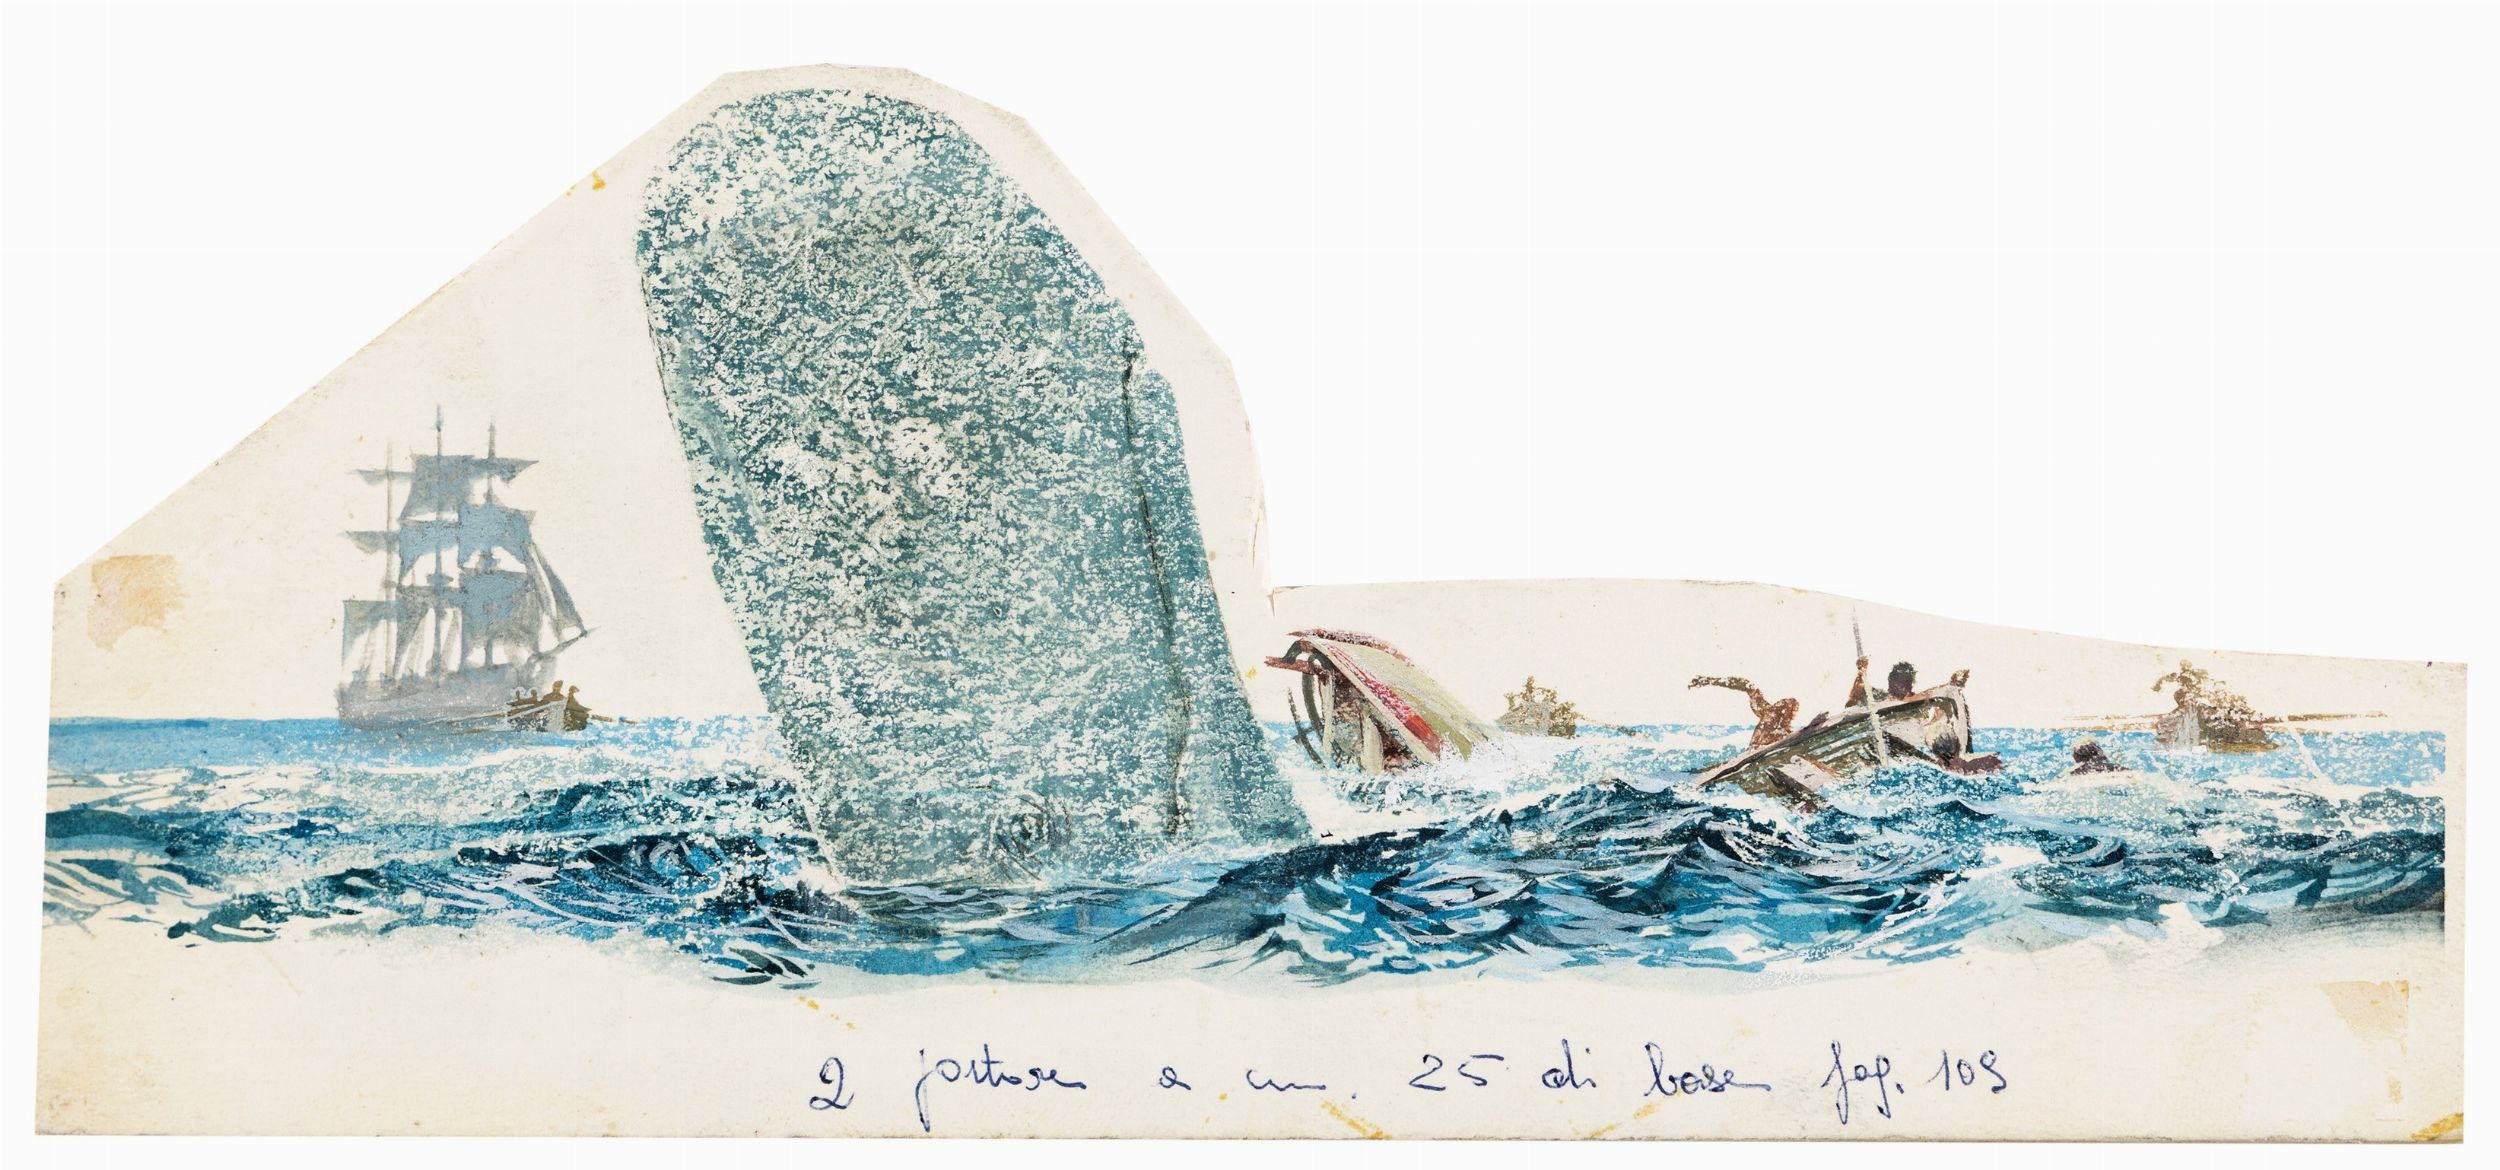 2 portare a cm. 25 di base pag. 109